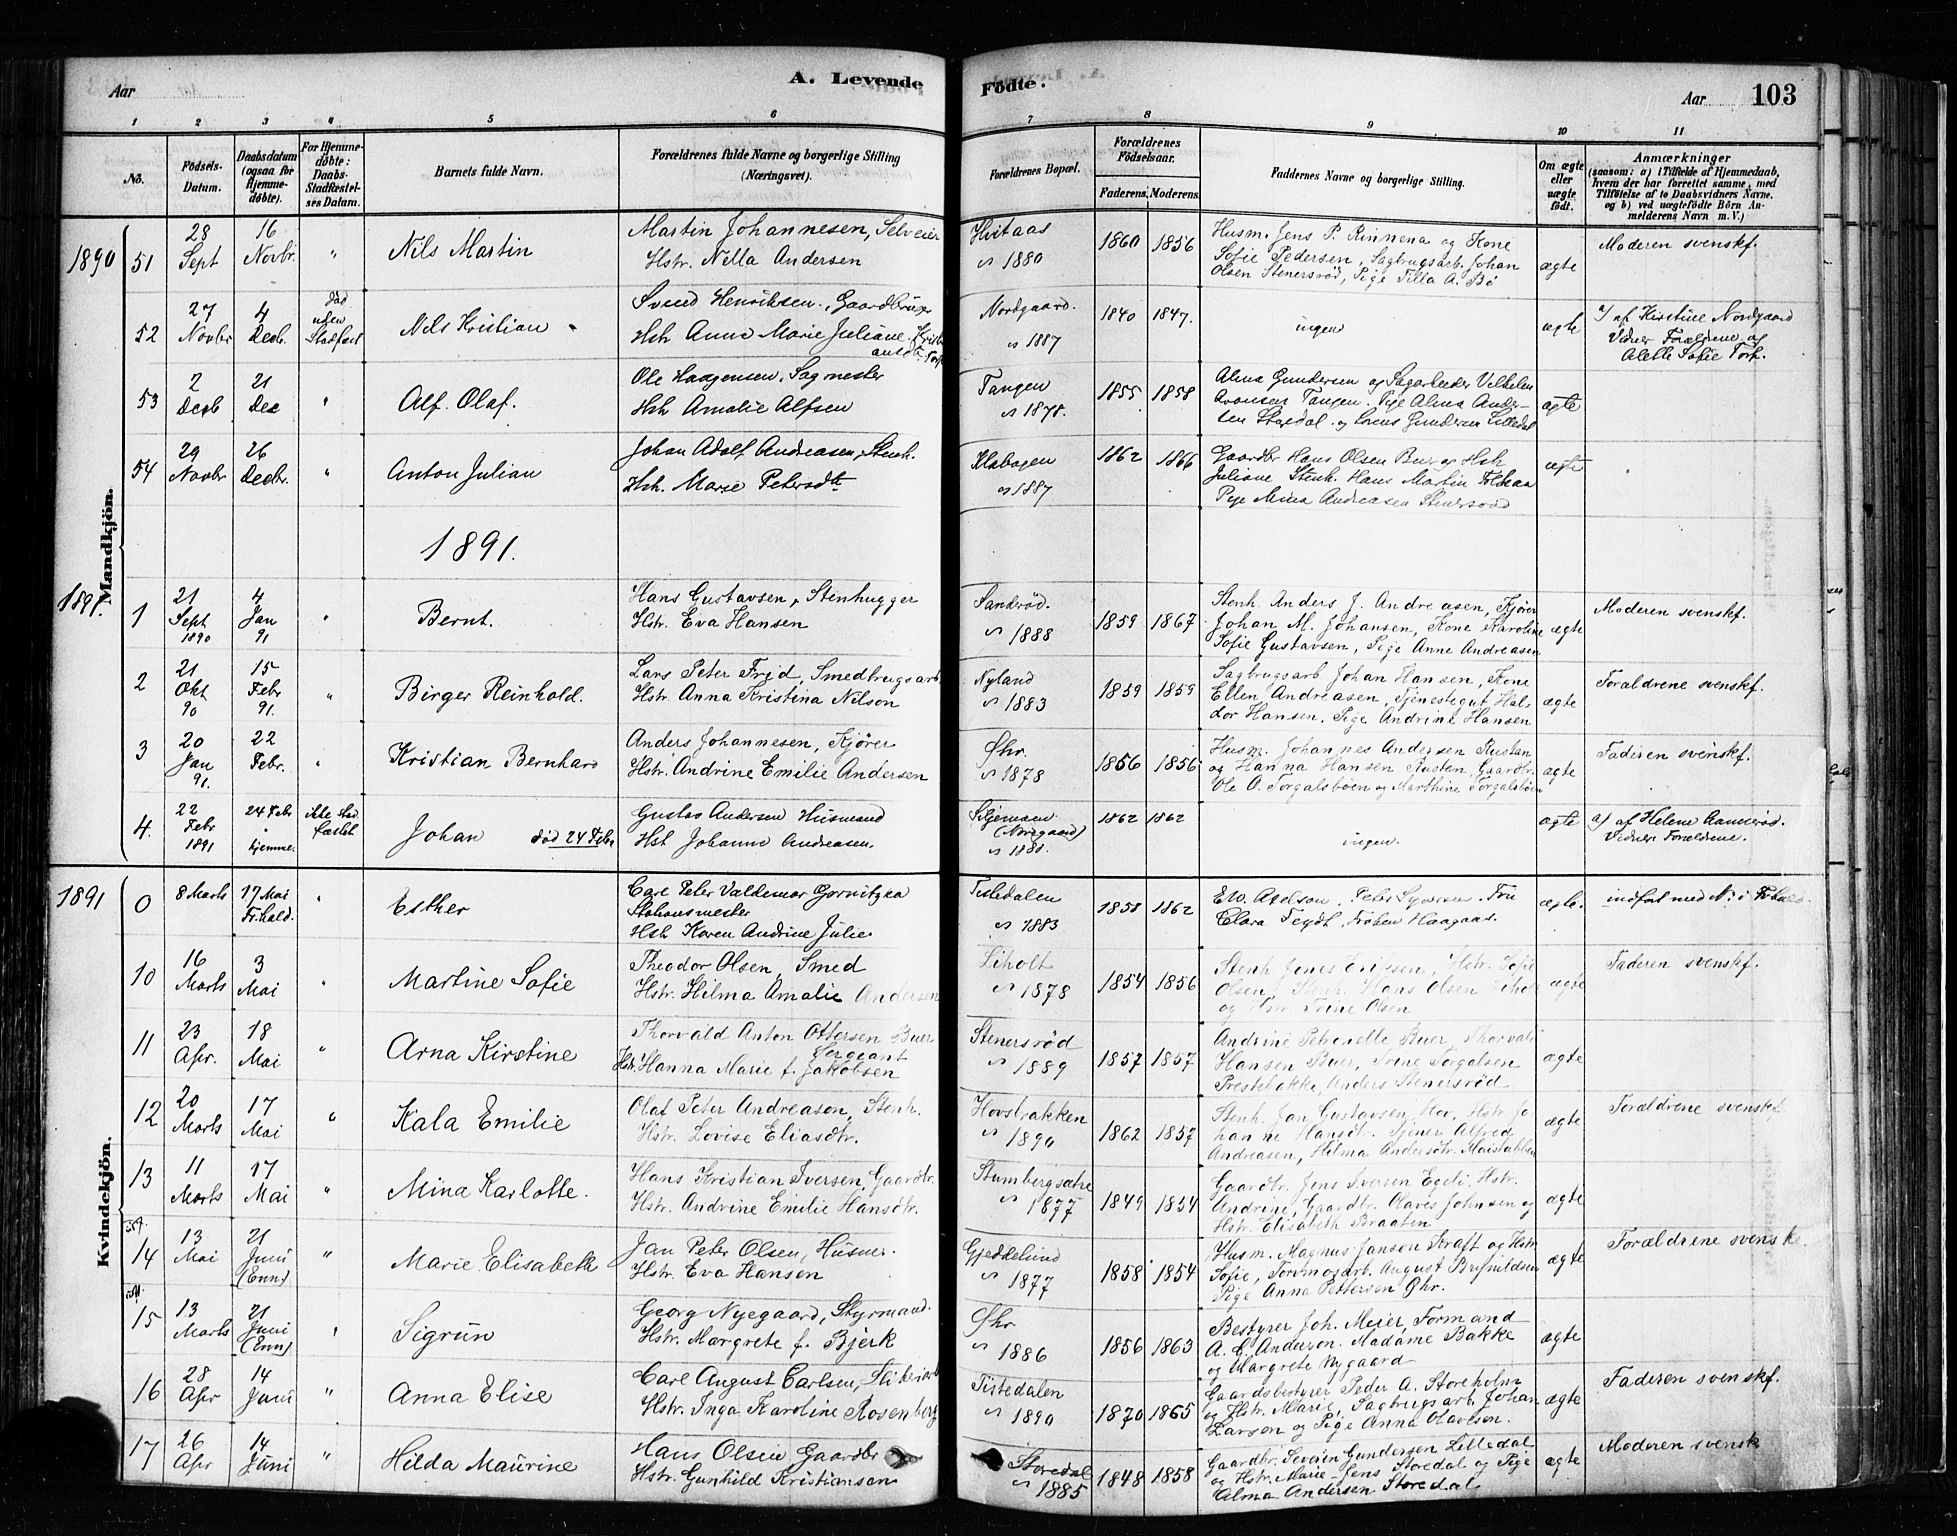 A. Levende
Aar
1 2 3 4 5 6
No.
Fødsels-
Datum.
Daabsdatum
(ogsaa for
Hjemme-
døbte).
For Hjemme-
døbte:
Daabs-
Stadfæstel-
ses Datum.
Barnets fulde Navn.
Forældrenes fulde Navne og borgerlige Stilling
(Næringsvei).
Fødte.
Aar 103
7 8 9 10 11
Forældrenes Bopæl.
Forældrenes
Fødselsaar.
Faderens. Moderens.
Faddernes Navne og borgerlige Stilling.
Om ægte
eller
uægte
født.
Anmærkninger
(saasom: a) i Tilfælde af Hjemmedaab,
hvem der har forrettet samme, med
Tilføielse af to Daabsvidners Navne,
og b) ved uægtefødte Børn An-
melderens Navn m. V.)
Mandkjøn.
1890 51 28 Sept 16 Novbr. " Nils Martin
Martin Johannesen, Selveier
Hstr. Nilla Andersen
Hvitaas
1880 1860 1856
Husm. Jens P. Rinnena og Kone
Sofie Pedersen, Sagbrugsarb. Johan
Olsen Stenersrød, Pige Tilla A. Bø
ægte Moderen svenskf.
52 27 Novbr 4 Decb. død uden Stadfæst Nils Kristian
Svend Henriksen, Gaardbruger
Hst Anne Marie Juliane Kristi
ansdtr Torp
Nordgaard.
1887 1840 1847.
ingen
ægte a/ af Kirstine Nordgaard
Vidner Forældrene og
Alette Sofie Torp.
53 2 Decb 21 Dec " Alf Olaf.
Ole Haagensen, Sagmester
Hst Amalie Alfsen
Tangen
1878. 1855 1858
Alma Gundersen og Sagarbeider Vilhelm
Aronsen Tangen. Pige Alma Ander-
sen Storedal og Lorens Gundersen Lilledal
ægte
54 29 Novbr 26 Decbr. " Anton Julian
Johan Adolf Andreasen, Stenh.
Hst. Marie Petersdtr
Klabogen
1887 1862 1866
Gaardbr Hans Olsen Buer og Hst
Juliane Stenh. Hans Martin Folkaa
Pige Mina Andreasen Stenersrød
ægte
1891.
1891. 1 21 Sept 1890 4 Jan 91 " Bernt.
Hans Gustavsen, Stenhugger
Hstr. Eva Hansen
Sanderød.
1888 1859 1867
Stenh. Anders J. Andreasen, Kjører
Johan M. Johansen, Kone Karoline
Sofie Gustavsen, Pige Anne Andreasen
ægte Moderen svenskf.
2 21 Okt 90 15 Febr 91. " Birger Reinhold.
Lars Peter Frid, Smedbrugsarb.
Hstr. Anna Kristina Nilson
Nyland
1883 1859 1859
Sagbrugsarb Johan Hansen, Kone
Ellen Andreasen, Tjenestegut Hal-
dor Hansen. Pige Andrine Hansen
ægte Forældrene svenskf.
3 20 Jan 91. 22 Febr. " Kristian Bernhard
Anders Johannesen, Kjører
Hstr. Andrine Emilie Andersen
Øhr.
1878 1856 1856
Husm. Johannes Andersen Rusten
og Hanna Hansen Rusten, Gaardbr.
Ole O. Torgalsbøen og Marthine Torgalsbøen
ægte Faderen svenskf.
4. 22 Febr 1891 24 Febr hjemme. ikke Stad fæstet Johan død 24 Febr
Gustav Andersen Husmand
Hst Johanne Andreasen.
(Nordgaard)
1888. 1862 1862
ingen.
ægte a) af Helene
Vidner Forældrene.
Kvindekjøn.
1891 0 8 Marts 17 Mai Fr.hald. " Esther
Carl Peter Valdemar Gornitzka
Stationsmester
Hst Karen Andrine Julie
Tistedalen
1883 1858 1862
E. W. Axelson, Peter Syversen, Fru
Clara Feydt, Frøken Haagaas.
ægte. indført med No: i Frhald.
10 16 Marts 3 Mai " Martine Sofie
Theodor Olsen, Smed
Hstr. Hilma Amalie Andersen
Liholt
1878 1854 1856
Stenh Jens Eriksen, Hstr. Sofie
Olsen, Stenh. Hans Olsen Liholt
og Hstr. Trine Olsen
ægte Faderen svenskf.
11 23 Apr. 18 Mai " Arna Kirstine
Thorvald Anton Ottersen Buer
Sergeant
Hstr. Hanna Marie f. Jakobsen
Stenersrød
1889 1857 1857
Andrine Petronelle Buer, Thorvald
Hansen Buer, Trine Torgalsen
Prestebakke, Anders Stenersrød
ægte
12 20 Marts 17 Mai " Kala Emilie
Olaf Peter Andreasen, Stenh.
Hstr. Lovise Eliasdtr.
Hovsbakken
1890 1862 1857
Stenh. Jan Gustavsen, Hov, Hstr. Jo
hanne Hansdtr. Tjener Alfred
Andreasen, Hilma Andersdtr.
ægte Forældrene svenskf.
13 11 Marts 17 Mai " Mina Karlotte.
Hans Kristian Iversen, Gaardbr.
Hstr. Andrine Emilie Hansdtr.
1877 1849 1854
Gaardbr. Jens Iversen Egeli, Hstr.
Andrine, Gaardbr. Olaves Johnsen og
Hstr. Elisabeth Braaten
ægte
14 13 Mai 21 Juni (Enn) " Marie Elisabeth
Jan Peter Olsen, Husm.
Hstr. Eva Hansen
Gjeddelund
1877 1858 1854
Husm. Magnus Janson Kraft og Hstr
Sofie, Torvmosarb. August Brynildsen
Pige Anna Pettersen Øhr.
ægte Forældrene svenske.
15 13 Marts 21 Juni (Enn) " Sigrun
Georg Nyegaard, Styrmand.
Hstr. Margrete f. Bjerk
Øhr
1886 1856 1863
Bestyrer Joh. Meier, Formand
A. C. Anderson. Madame Bakke
og Margrete Nygaard
ægte
16 28 Apr 14 Juni " Anna Elise
Carl August Carlsen,
Hstr. Inga Karoline Rosenberg
Tistedalen
1890 1870 1865
Gaardsbestyrer Peder A. Storeholm
og Hstr. Marie, Sagbrugsarb. Johan
Larsen og Pige Anna Olavsen.
ægte Faderen svenskf.
17 26 Apr 14 Juni " Hilda Maurine
Hans Olsen Gaardbr
Hstr. Gunhild Kristiansen
Storedal
1885 1848 1858
Gaardbr. Severin Gundersen Lilledal
og Hstr. Marie, Jens Storedal og Pige
Alma Andersen Storedal
ægte Moderen svensk